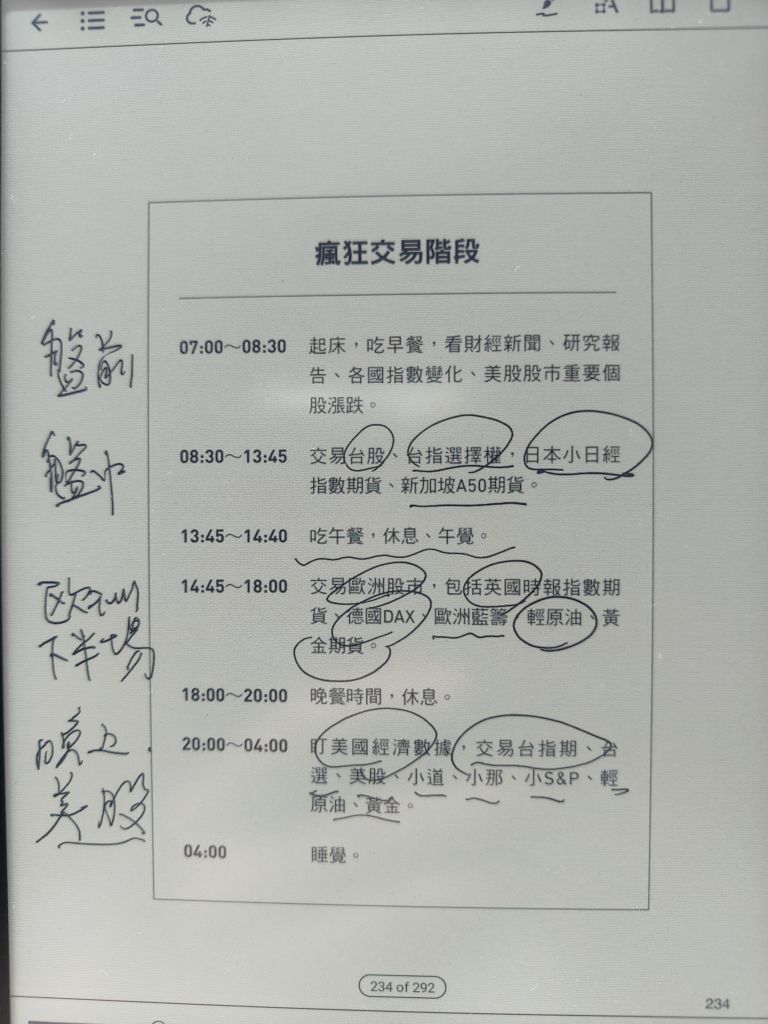 瘋狂交易階段
盤前
07:00～08:30 起床，吃早餐，看財經新聞、研究報
告、各國指數變化、美股股市重要個
股漲跌。
盤中
08:30～13:45 交易台股、台指選擇權，日本小日經
指數期貨、新加坡A50期貨。
13:45～14:40 吃午餐，休息、午覺。
歐洲
下半場
14:45～18:00 交易歐洲股市，包括英國時報指數期
貨、德國DAX、歐洲藍籌、輕原油、黃
金期貨。
18:00～20:00 晚餐時間，休息。
晚上
美股
20:00～04:00 盯美國經濟數據，交易台指期、台
選、美股、小道、小那、小S&P、輕
原油、黃金。
04:00 睡覺。
234 of 292
234